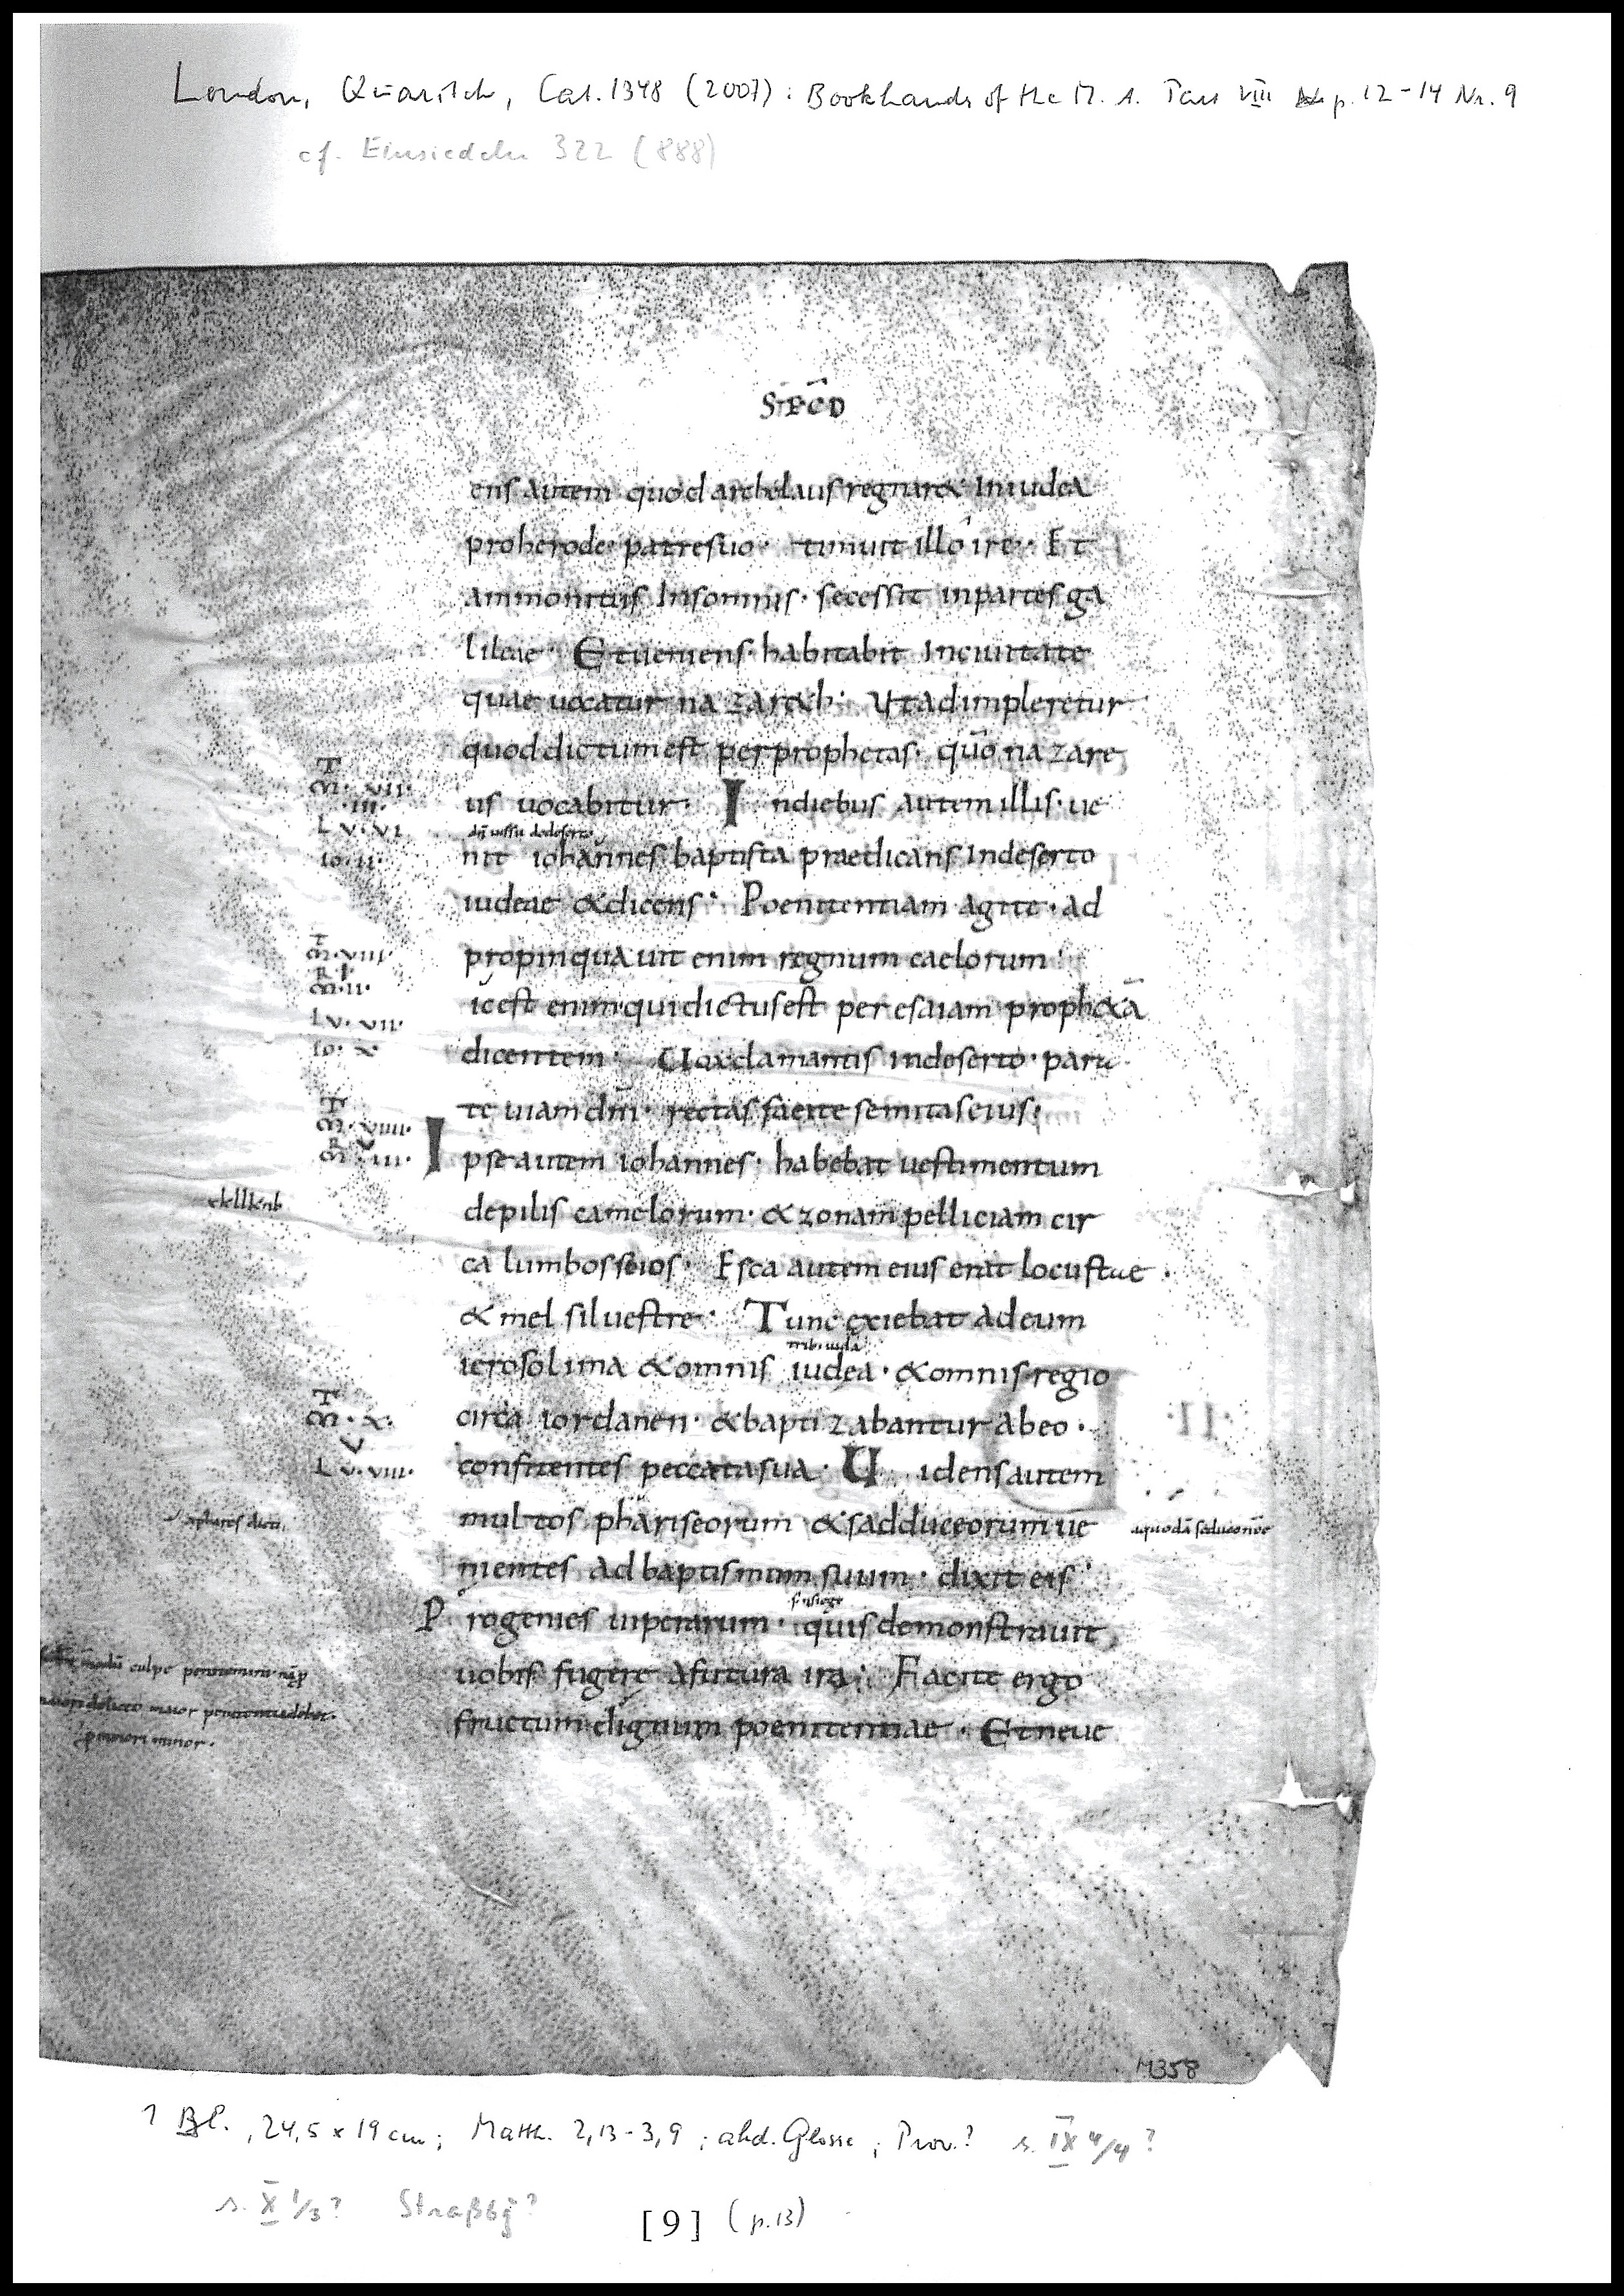 London, Quaritch, Cat. 1348 (2007): Bookhands of the M. A. Part VIII p. 12-14 Nr. 9
cf. Einsiedeln 322 (888)
SECD
ens autem quod archelaus regnar& In iudea
pro herode patre suo · timuit illo ire · Et
ammonitus In somnis · secessit in partes ga
lileae · Et ueniens · habitabit In ciuitate
quae uocatur nazar&h · Ut adimpleretur
quod dictum est per prophetas · quo nazare
us uocabitur · In diebus autem illis · ue
nit iohannes baptista praedicans In deserto
iudeae & dicens · Poenitentiam agite · ad
propinquauit enim regnum caelorum ·
ic est enim qui dictus est per esaiam proph&ā
dicentem · Uox clamantis In deserto · para
te uiam dn̄i · rectas facite semitas eius ·
Ipse autem iohannes · habebat uestimentum
de pilis camelorum · & zonam pelliciam cir
ca lumbos seios · Esca autem eius erat locustae ·
& mel siluestre · Tunc exiebat ad eum
ierosolima & omnis iudea · & omnis regio
circa iordanen · & baptizabantur ab eo ·
confitentes peccata sua · Uidens autem
multos phariseorum & sadduceorum ue
nientes ad baptismum suum · dixit eis ·
Progenies uiperarum · quis demonstrauit
uobis fugire a futura ira · Facite ergo
fructum dignum poenitentiae · Et neue
T
M · VII ·
· III ·
LV · VI
IO · II ·
T
M · VIII ·
M · II ·
LV · VII ·
IO · X ·
T
M · VIIII ·
M · III ·
T
M · X ·
V
LV · VIII ·
· II ·
culpe
maior
minor ·
M358
1 Bl., 24,5 x 19 cm; Matth. 2,13-3,9; ahd. Glosse; Prov.? s. IX 4/4?
s. X 1/3? Straßbg?
[9] (p. 13)